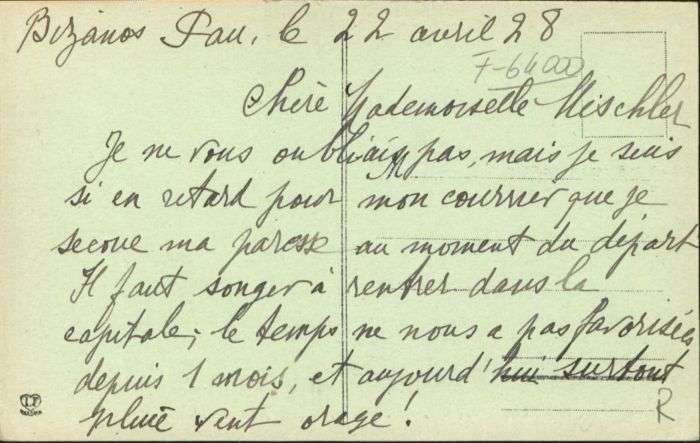 Bizanos Pau, le 22 avril 28
F-64000
Chère Mademoiselle Mischler
Je ne vous oubliais pas, mais je suis
si en retard pour mon courrier que je
secoue ma paresse au moment du départ
Il faut songer à rentrer dans la
capitale, le temps ne nous a pas favorisés
depuis 1 mois, et aujourd'hui surtout
pluie vent orage!
R